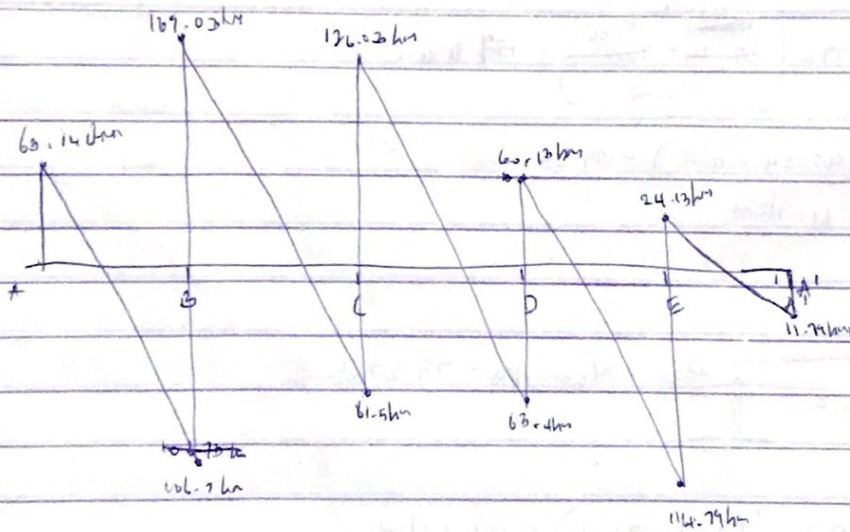 169.03km
126.03km
63.14km
60.13km
24.13km
A
B
C
D
E
A'
11.79km
81.5km
63.4km
106.7km
114.79km